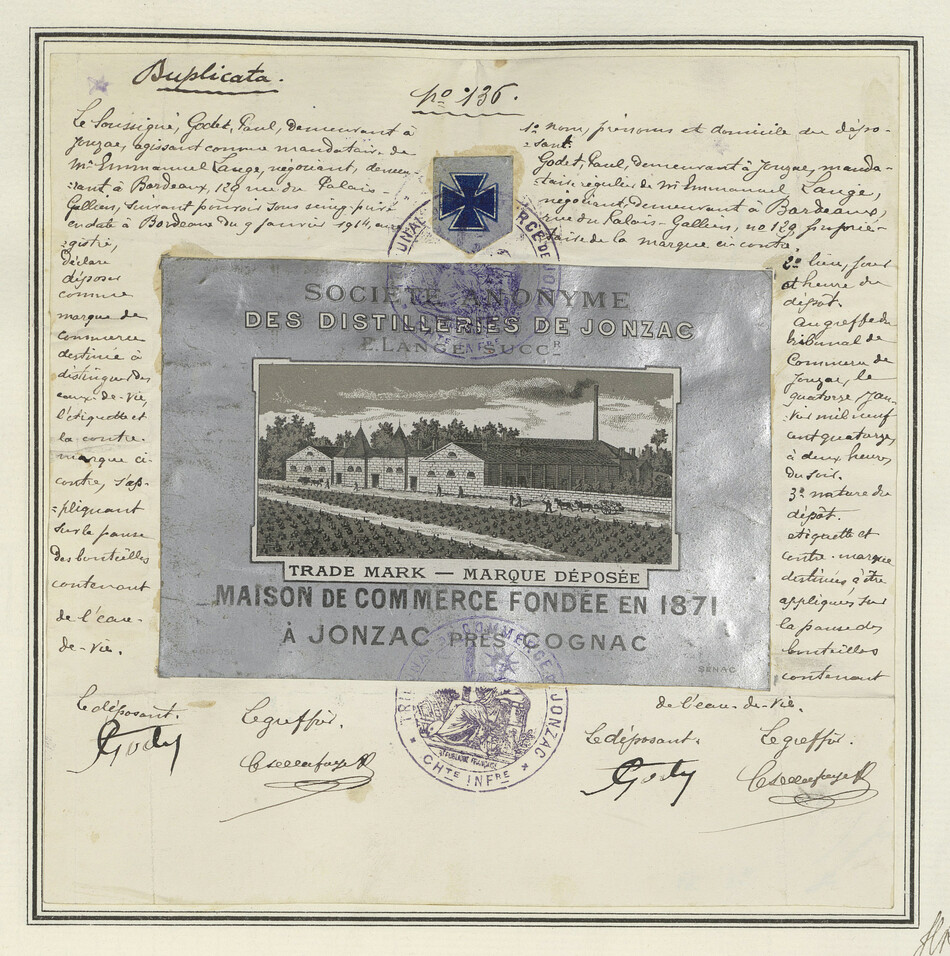 Duplicata.
No 136.
Le Soussigné, Godet, Paul, demeurant à
Jonzac, agissant comme mandataire de
Mr Emmanuel Lange, négociant, demeu-
-rant à Bordeaux, 129 rue du Palais-
Gallien, suivant pouvoir sous seing-privé
en date à Bordeaux du 9 janvier 1914, enre
-gistré,
déclare
déposer
comme
marque de
commerce
destinée à
distinguer des
eaux-de-vie,
l'étiquette et
la contre-
marque ci-
contre, s'ap-
-pliquant
sur la panse
des bouteilles
contenant
de l'eau-
de-vie.
Le déposant.
Le greffier.
1o nom, prénoms et domicile du dépo-
-sant.
Godet, Paul, demeurant à Jonzac, manda-
-taire régulier de Mr Emmanuel Lange,
négociant, demeurant à Bordeaux,
rue du Palais-Gallien, no 129, proprié-
-taire de la marque ci contre.
2o lieu, jour
et heure du
dépôt.
Au greffe du
tribunal de
Commerce de
Jonzac, le
quatorze jan-
-vier mil neuf
cent quatorze,
à deux heures
du soir.
3o nature du
dépôt.
étiquette et
contre-marque
destinées à être
appliquées sur
la panse des
bouteilles
contenant
de l'eau-de-vie.
Le déposant.
Le greffier.
SOCIÉTÉ ANONYME
DES DISTILLERIES DE JONZAC
E. LANGE SUCCR
TRADE MARK — MARQUE DÉPOSÉE
MAISON DE COMMERCE FONDÉE EN 1871
À JONZAC PRÈS COGNAC
SENAC
TRIBUNAL DE COMMERCE DE JONZAC
RÉPUBLIQUE FRANÇAISE
CHTE INFRE